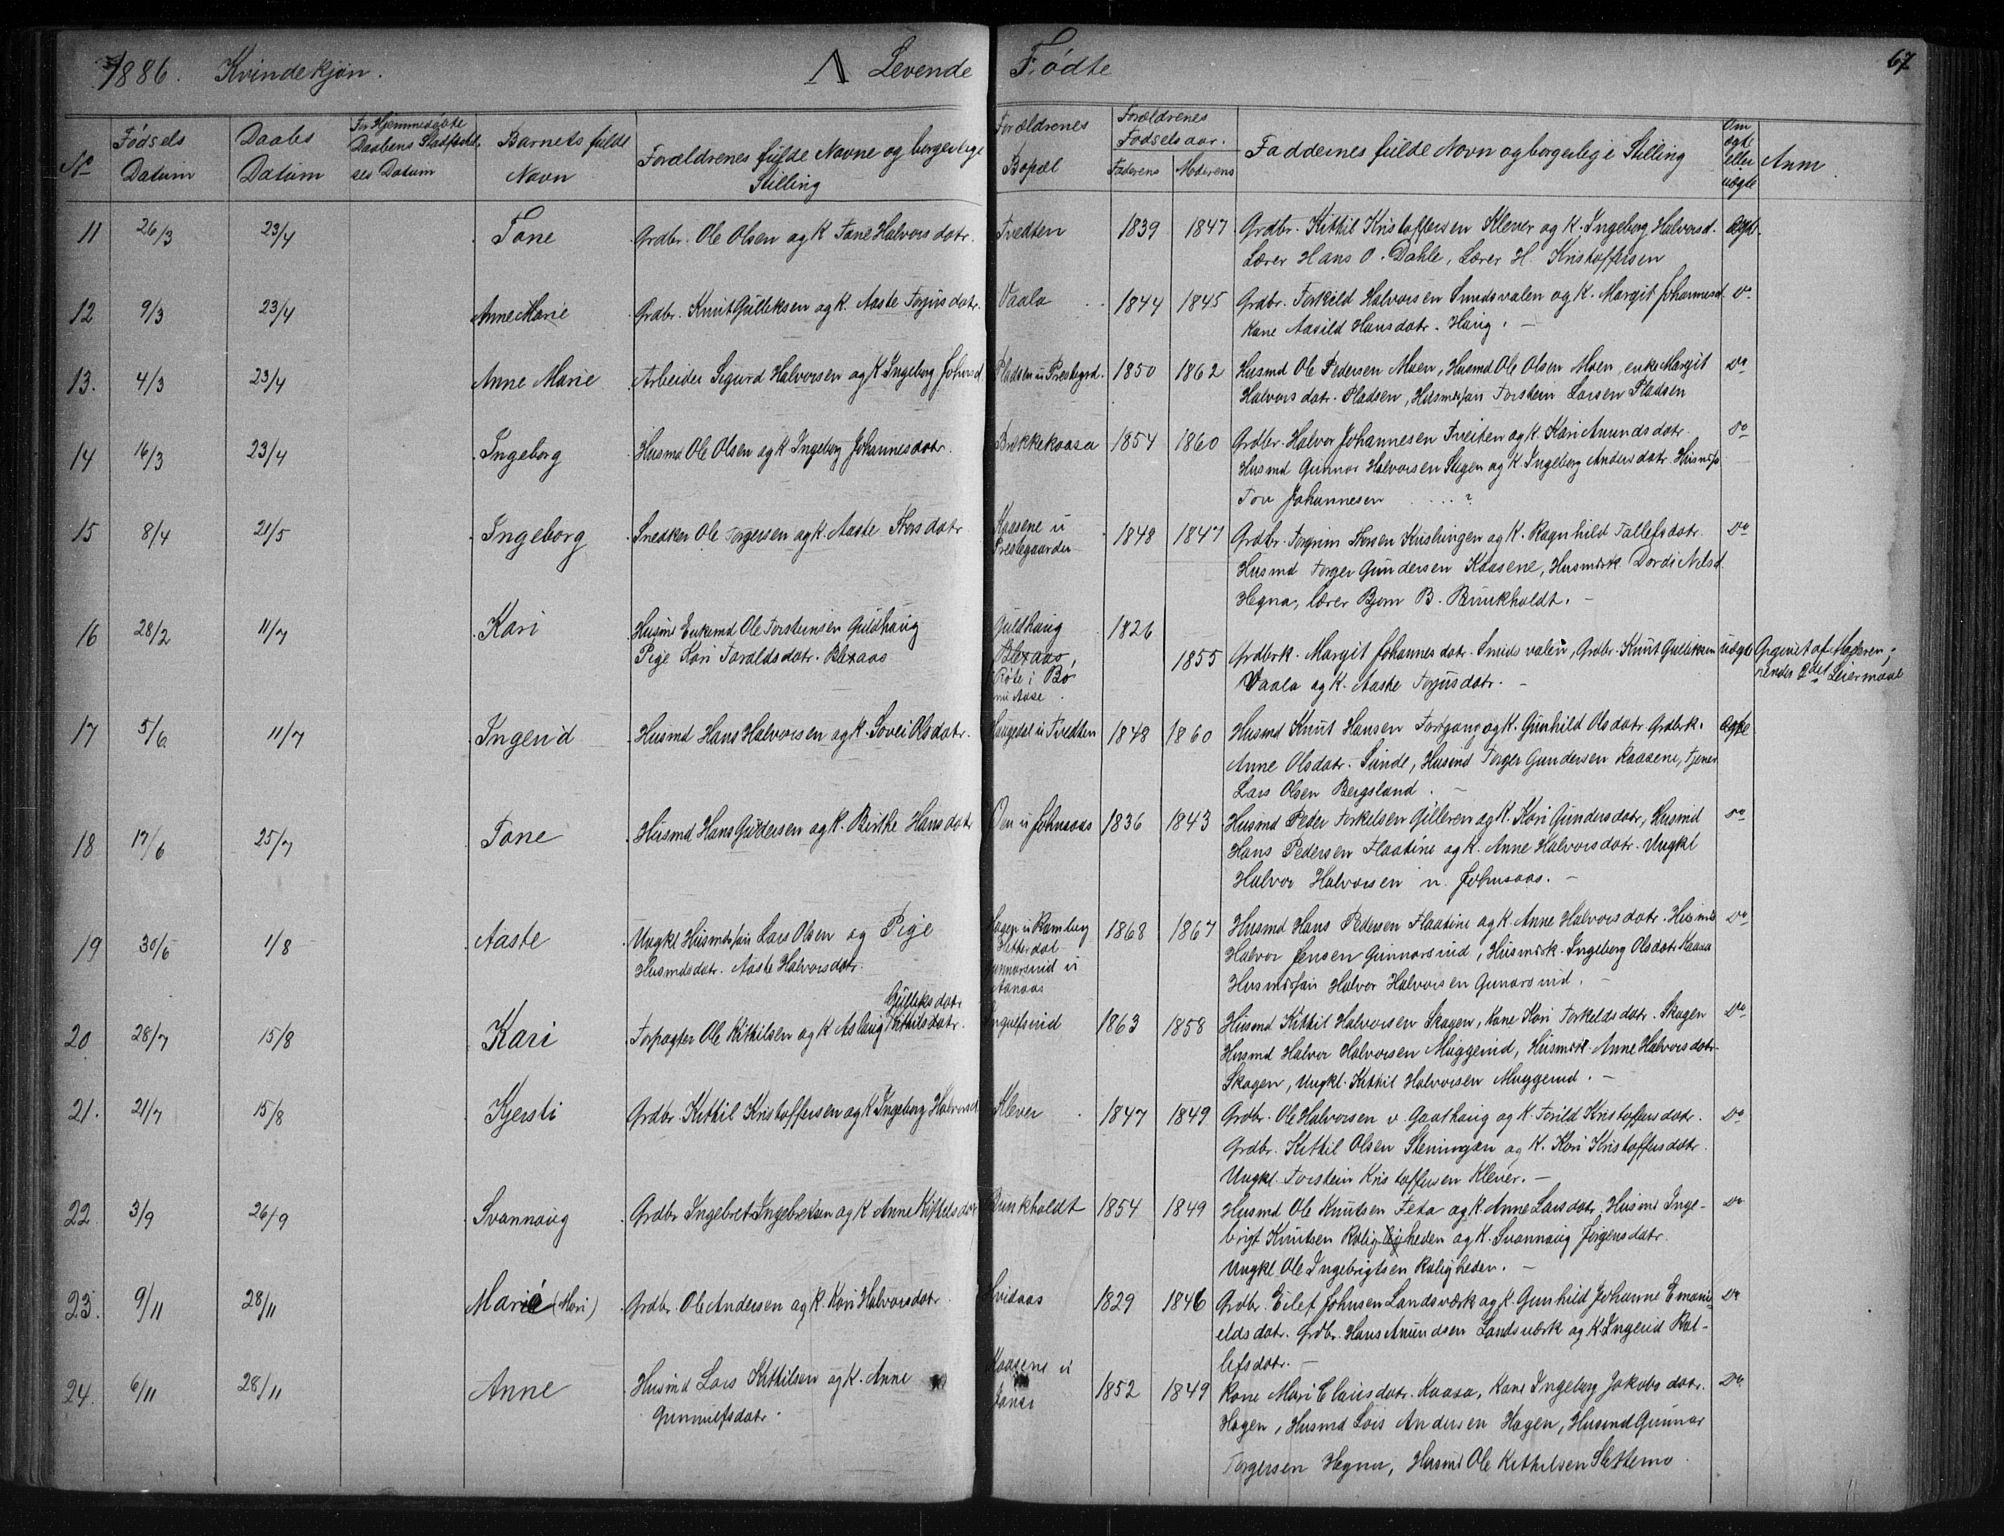 1886. Kvindekjøn. A Levende Fødte 67
No
Fødsels Datum
Daabs Datum
For Hjemmedøbte Daabens Stadfæstelses Datum
Barnets fulde Navn
Forældrenes fulde Navne og borgerlige Stilling
Forældrenes Bopæl
Forældrenes Fødselsaar.
Faderens Moderens
Faddernes fulde Navn og borgerlige Stilling
Om ægte eller uægte
Anm.
11 26/3 23/4 Tone Grdbr. Ole Olsen og K Tone Halvorsdatr. Tvedten 1839 1847 Grdbr. Kittil Kristoffersen Klever og K. Ingeborg Halvorsd. ægt.
Lærer Hans O. Dahle, Lærer H. Kristoffersen
12 9/3 23/4 Anne Marie Grdbr. Knut Gulleksen og K. Aaste Torjusdatr. Vaala 1844 1845 Grdbr. Torkild Halvorsen Smidsvalen og K. Margit Johannesd. Do
Kone Aasild Hansdatr. Haug. —
13. 4/3 23/4 Anne Marie Arbeider Sigurd Halvorsen og K Ingeborg Johnsd. Pladsen u Prestegrd. 1850 1862 Husmd Ole Pedersen Moen, Husmd Ole Olsen Moen, enke Margit Do
Halvorsdatr. Pladsen, Husmdsøn Torstein Larsen Pladsen
14 16/3 23/4 Ingeborg Husmd Ole Olsen og K Ingeborg Johannesdatr. Brækkekaasa 1854 1860 Grdbr. Halvor Johannesen Tveiten og K. Kari Amundsdatr. Do
Husmd Gunnar Halvorsen Stigen og K Ingeborg Andersdatr.
Tov Johannesen ..... ?
15 8/4 21/5 Ingeborg Snedker Ole Torgersen og K. Aaste Thorsdatr. Kaasene u Prestegaarden 1848 1847 Grdbr. Torgrim Thorsen og K. Ragnhild Tallefsdatr. Do
Husmd Torger Gundersen Kaasene, Husmdsk Dordi Nilsd.
Hegna, lærer Bjørn B. Brunkholdt. —
16 28/2 11/7 Kari Husmd Enkemd Ole Torsteinsen Guldhaug Guldhaug 1826
Pige Kari Taraldsdatr. Blexaas Blexaas, i Bø nu Aase. 1855 Grdbrk. Margit Johannesdatr. Smidsvalen, Grdbr. Knut Gulleksen uægte Opgivet af Moderen;
Vaala og K. Aaste Torjusdatr. — 2det Leiermaal
17 5/6 11/7 Ingerid Husmd Hans Halvorsen og K. Sovei Olsdatr. Haugedal u Tvedten 1848 1860 Husmd Knut Hansen Fortgang og K. Gunhild Olsdatr. Grdbrk. ægte
Anne Olsdatr. Sunde, Husmd Torger Gundersen Kaasene, Tjener
Lars Olsen Bergsland. —
18 17/6 25/7 Tone Husmd Hans Gundersen og K. Birthe Hansdatr. Øen u Johnsaas 1836 1843 Husmd Peder Torkelsen Gilleren og K. Kari Gundersdatr, Husmd Do
Hans Pedersen Flaatine og K. Anne Halvorsdatr. Ungkl
Halvor Halvorsen u. Johnsaas. —
19 30/6 1/8 Aaste Ungkl Husmdsøn Lars Olsen og Pige Hagen u Ramberg Hitterdal 1868 1867 Husmd Hans Pedersen Flaatine og K Anne Halvorsdatr. Husmd Do
Husmdsdatr. Aaste Halvorsdatr. Gunnarsrud u Halvor Jensen Gunnarsrud, Husmdsk. Ingeborg Olsdatr Kaasa
Husmdsøn Halvor Halvorsen Gunarsrud.
20 28/7 15/8 Kari Forpagter Ole Kittilsen og K Aslaug Gulleksdatr. Kittilsdatr. Ingulfsrud 1863 1858 Husmd Kittil Halvorsen Skogen, Kone Kari Torkeldsdatr. Skogen Do
Husmd Halvor Halvorsen Muggerud, Husmdsk. Anne Halvorsdatr.
Skogen, Ungkl. Kittil Halvorsen Muggerud. —
21. 21/7 15/8 Kjersti Grdbr. Kittil Kristoffersen og K Ingeborg Halvorsd. Klever 1847 1849 Grdbr. Ole Halvorsen v Gaathaug og K. Torild Kristoffersdatr. Do
Grdbr. Kittil Olsen Steningen og K. Kari Kristoffersdatr.
Ungkl. Torstein Kristoffersen Klever. —
22 3/9 26/9 Svannaug Grdbr Ingebret Ingebretsen og K Anne Kittelsdatr Brunkholdt 1854 1849 Husmd Ole Knutsen Feta og K. Anne Larsdatr, Husmd Inge- Do
brigt Knutsen Roligheden og K. Svannaug Jørgensdatr.
Ungkl Ole Ingebrigtsen Roligheden. —
23. 9/11 28/11 Marie (Mari) Grdbr. Ole Andersen og K. Kari Halvorsdatr. Hvidaas 1829 1846 Grdbr. Eilef Johnsen Landsværk og K. Gunhild Johanne Emani- Do
eldsdatr. Grdbr. Hans Amundsen Landsværk og K. Ingerid Rol-
lefsdatr. —
24. 6/11 28/11 Anne Husmd Lars Kittilsen og K. Anne Gunnulfsdatr. Kaasene u Jønsi 1852 1849 Kone Mari Clausdatr. Kaasa, Kone Ingeborg Jakobsdatr. Do
Hagen, Husmd Lars Andersen Hagen, Husmd Gunnar
Torgersen Hegna, Husmd Ole Kittilsen Slettemo.